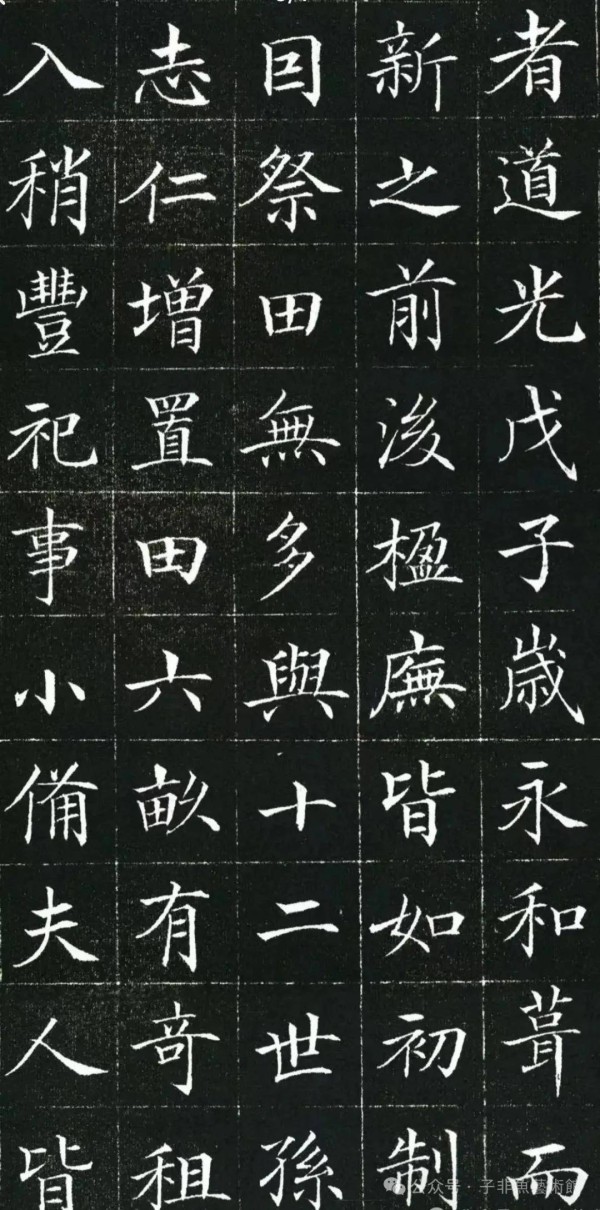 者道光戊子歲永和葺而
新之前後楹廡皆如初制
囙祭田無多與十二世孫
志仁增置田六畝有奇租
入稍豐祀事小備夫人皆
公众号 · 子非魚藝術館